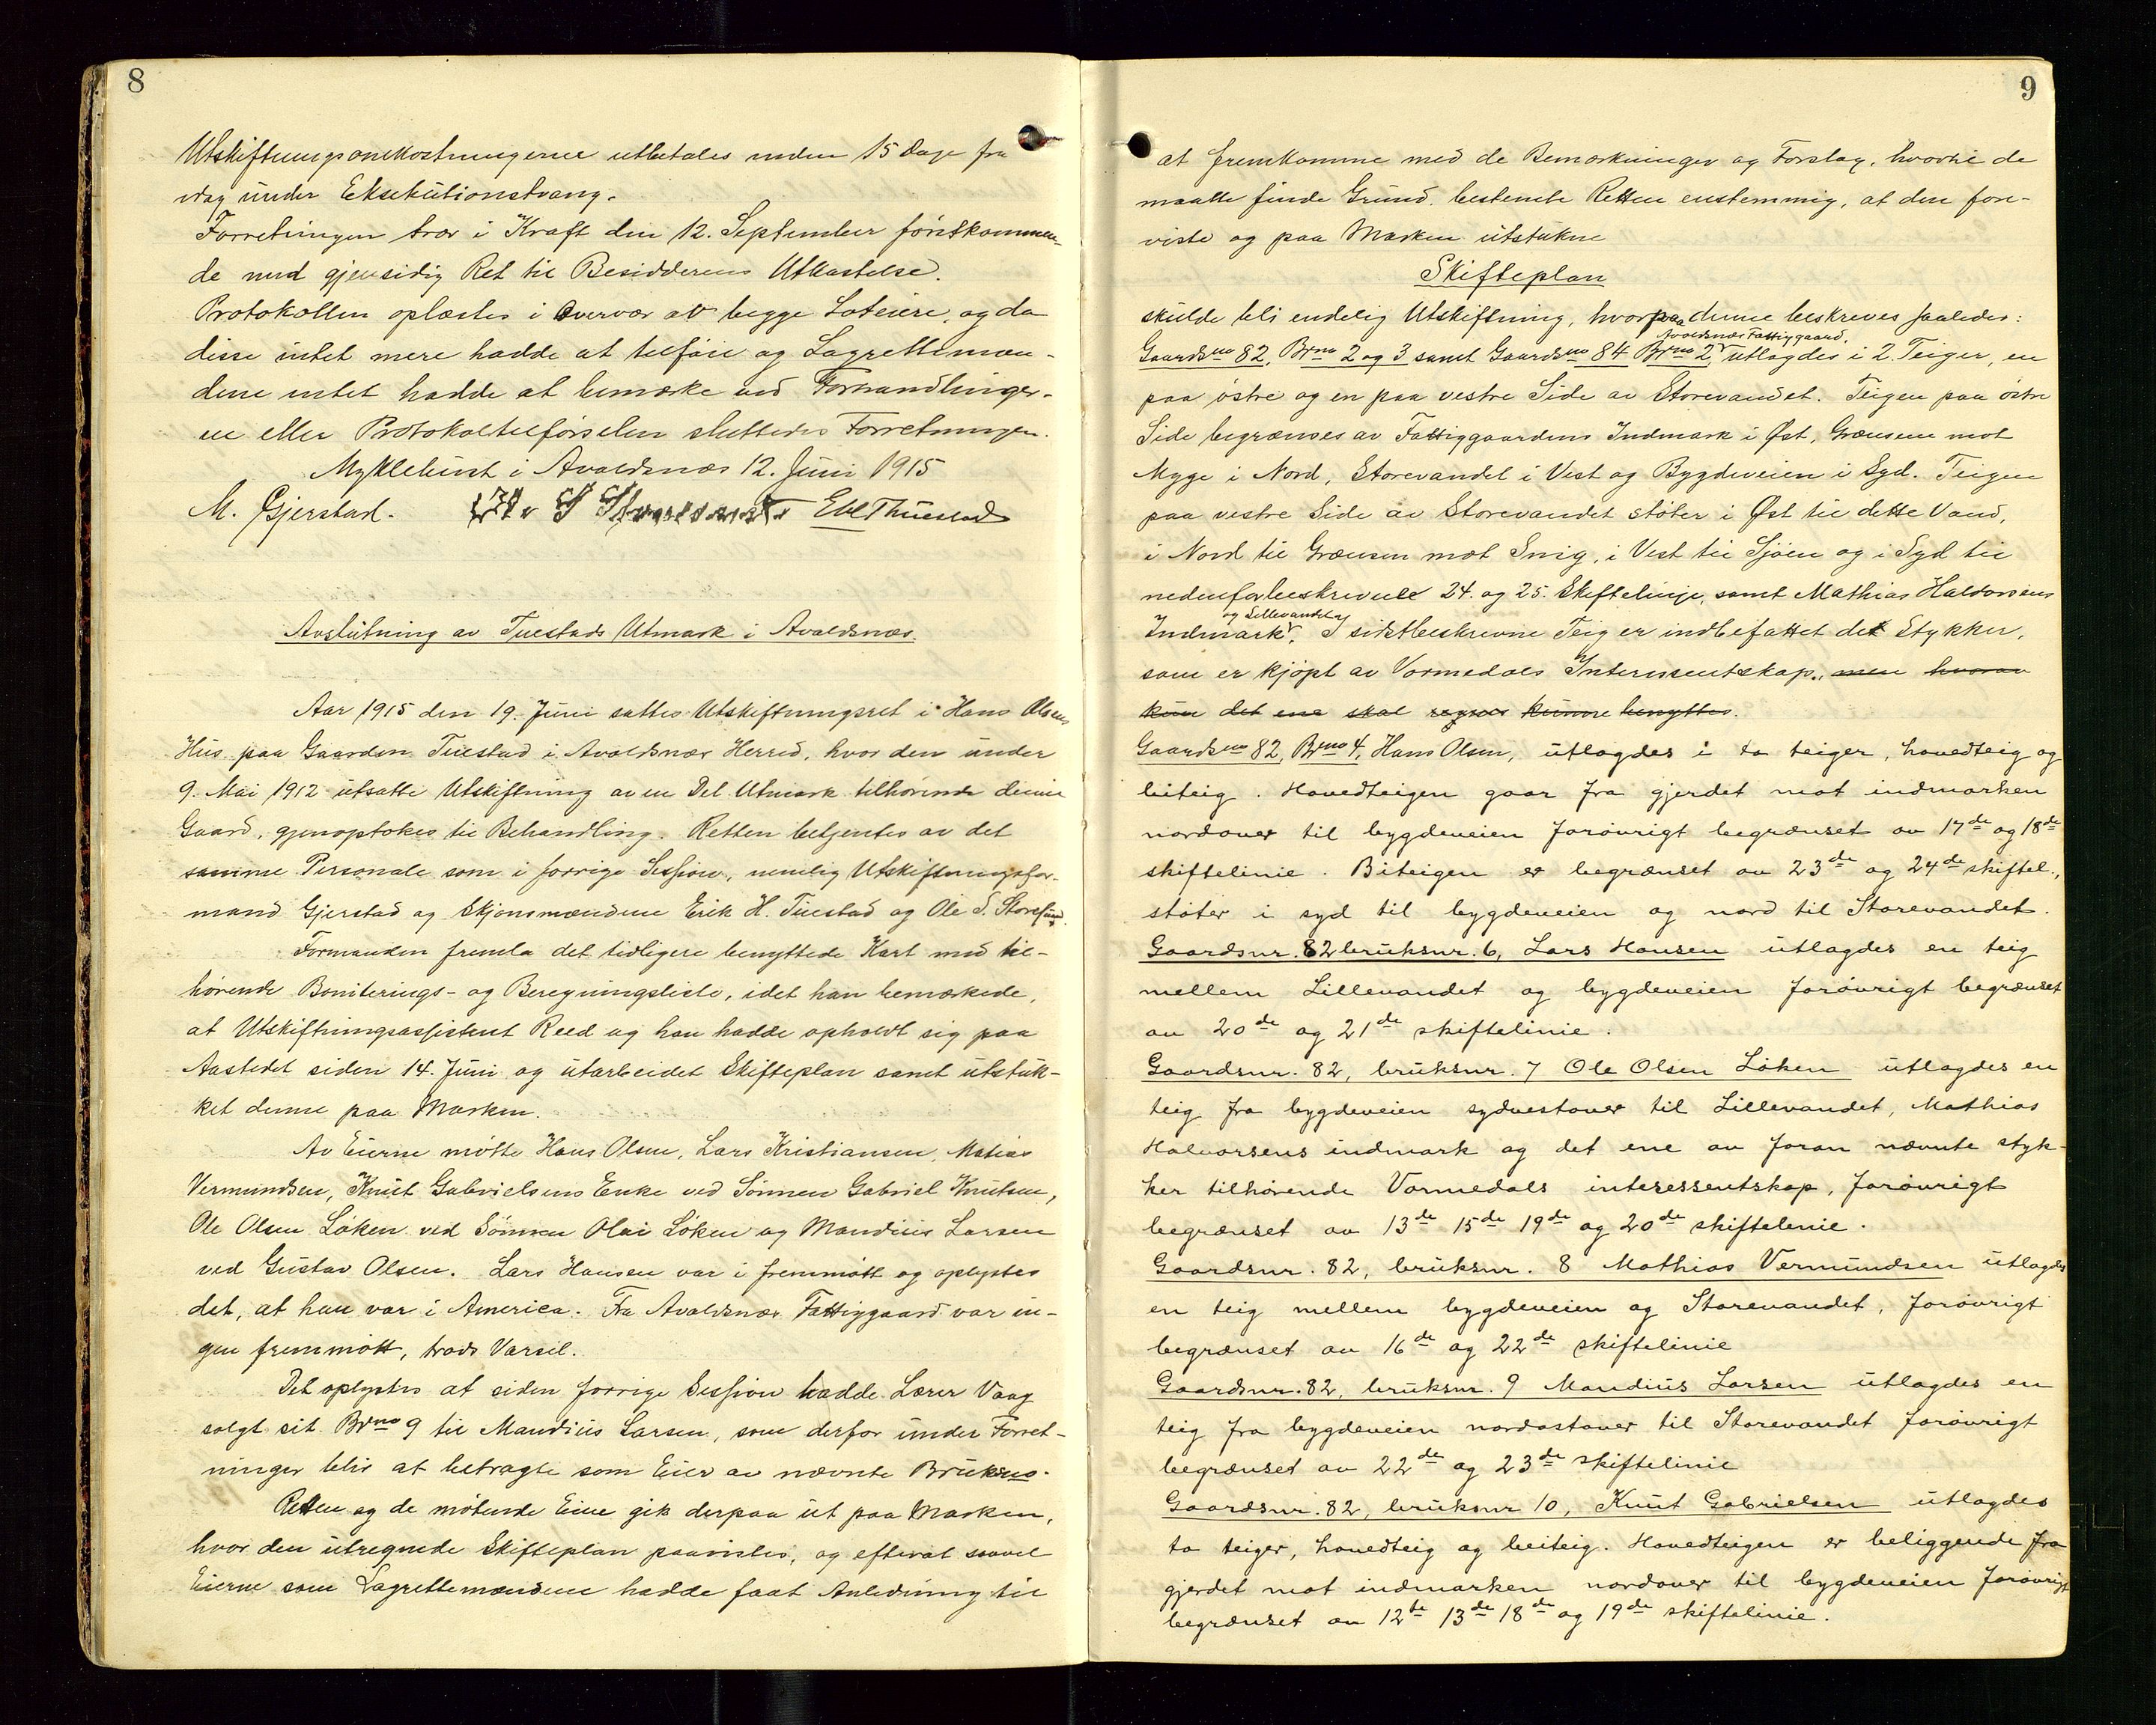 8
Utskiftningsomkostningerne utbetales inden 15 Dage fra
idag under Eksekutionstvang.
Forretningen træer i Kraft den 12. September førstkommen-
de med gjensidig Ret til Besidderens Utkastelse.
Protokollen oplæstes i Overvær av begge Loteiere, og da
disse intet mere hadde at tilføie og Lagrettemæn-
dene intet hadde at bemærke ved Forhandlinger-
ne eller Protokoltilførselen sluttedes Forretningen.
Myklebust i Avaldsnes 12. Juni 1915
M. Gjerstad. Ole S Storesund EHThuestad
Avslutning av Tuestads Utmark i Avaldsnes.
Aar 1915 den 19. Juni sattes Utskiftningsret i Hans Olsens
Hus paa Gaarden Tuestad i Avaldsnes Herred, hvor den under
9. Mai 1912 utsatte Utskiftning av en Del Utmark tilhørende denne
Gaard, gjenoptokes til Behandling. Retten betjentes av det
samme Personale som i forrige Session, nemlig Utskiftningsfor-
mand Gjerstad og Skjønsmændene Erik H. Tuestad og Ole S. Storesund.
Formanden fremla det tidligere benyttede Kart med til-
hørende Boniterings- og Beregningsliste, idet han bemærkede,
at Utskiftningsassistent Reed og han hadde opholdt sig paa
Aastedet siden 14. Juni og utarbeidet Skifteplan samt utstuk-
ket denne paa Marken.
Av Eierne møtte Hans Olsen, Lars Kristiansen, Matias
Vermundsen, Knut Gabrielsens Enke ved Sønnen Gabriel Knutsen,
Ole Olsen Løken ved Sønnen Olai Løken og Mandius Larsen
ved Gustav Olsen. Lars Hansen var i fremmøtt og oplystes
det, at han var i America. Fra Avaldsnes Fattiggaard var in-
gen fremmøtt, trods Varsel.
Det oplystes at siden forrige Session hadde Lærer Vaag
solgt sit Brno 9 til Mandius Larsen, som derfor under Forret-
ninger blir at betragte som Eier av nævnte Bruksno.
Retten og de møtende Eiere gik derpaa ut paa Marken,
hvor den utregnede Skifteplan paavistes, og efterat saavel
Eierne som Lagrettemændene hadde faat Anledning til
9
at fremkomme med de Bemærkninger og Forslag, hvortil de
maatte finde Grund, bestemte Retten enstemmig, at den fore-
viste og paa Marken utstukne
Skifteplan
skulde bli endelig Utskiftning, hvorpaa denne beskreves saaledes:
Avaldsnes Fattiggaard.
Gaardsno 82, Brno 2 og 3 samt Gaardsno 84 Brno 2 utlagdes i 2 Teiger, en
paa østre og en paa vestre Side av Storevandet. Teigen paa østre
Side begrænses av Fattiggaardens Indmark i Øst, Grænsen mot
Mygge i Nord, Storevandet i Vest og Bygdeveien i Syd. Teigen
paa vestre Side av Storevandet støter i Øst til dette Vand,
i Nord til Grænsen mot Snig, i Vest til Sjøen og i Syd til
nedenforbeskrevne 24. og 25. Skiftelinje, samt Mathias Haldorsens
og Lillevandet
Indmark. I sidstbeskrevne Teig er indbefattet de Stykker,
som er kjøpt av Vormedals Interessentskap., men hvorav
kun det ene skal kunne benyttes.
Gaardsno 82, Brno 4, Hans Olsen, utlagdes i to teiger, hovedteig og
biteig. Hovedteigen gaar fra gjerdet mot indmarken
nordover til bygdeveien forøvrigt begrænset av 17de og 18de
skiftelinie. Biteigen er begrænset av 23de og 24de skiftel.,
støter i syd til bygdeveien og nord til Storevandet.
Gaardsnr. 82 bruksnr. 6, Lars Hansen utlagdes en teig
mellem Lillevandet og bygdeveien forøvrigt begrænset
av 20de og 21de skiftelinie.
Gaardsnr. 82, bruksnr. 7 Ole Olsen Løken utlagdes en
teig fra bygdeveien sydvestover til Lillevandet, Mathias
Halvorsens indmark og det ene av foran nævnte styk-
ker tilhørende Vormedals interessentskap, forøvrigt
begrænset av 13de 15de 19de og 20de skiftelinie.
Gaardsnr. 82, bruksnr. 8 Mathias Vermundsen utlagdes
en teig mellem bygdeveien og Storevandet, forøvrigt
begrænset av 16de og 22de skiftelinie
Gaardsnr. 82, bruksnr. 9 Mandius Larsen utlagdes en
teig fra bygdeveien nordostover til Storevandet forøvrigt
begrænset av 22de og 23de skiftelinie
Gaardsnr. 82, bruksnr 10, Knut Gabrielsen utlagdes
to teiger, hovedteig og biteig. Hovedteigen er beliggende fra
gjerdet mot indmarken nordover til bygdeveien forøvrigt
begrænset av 12te 13de 18de og 19de skiftelinie.